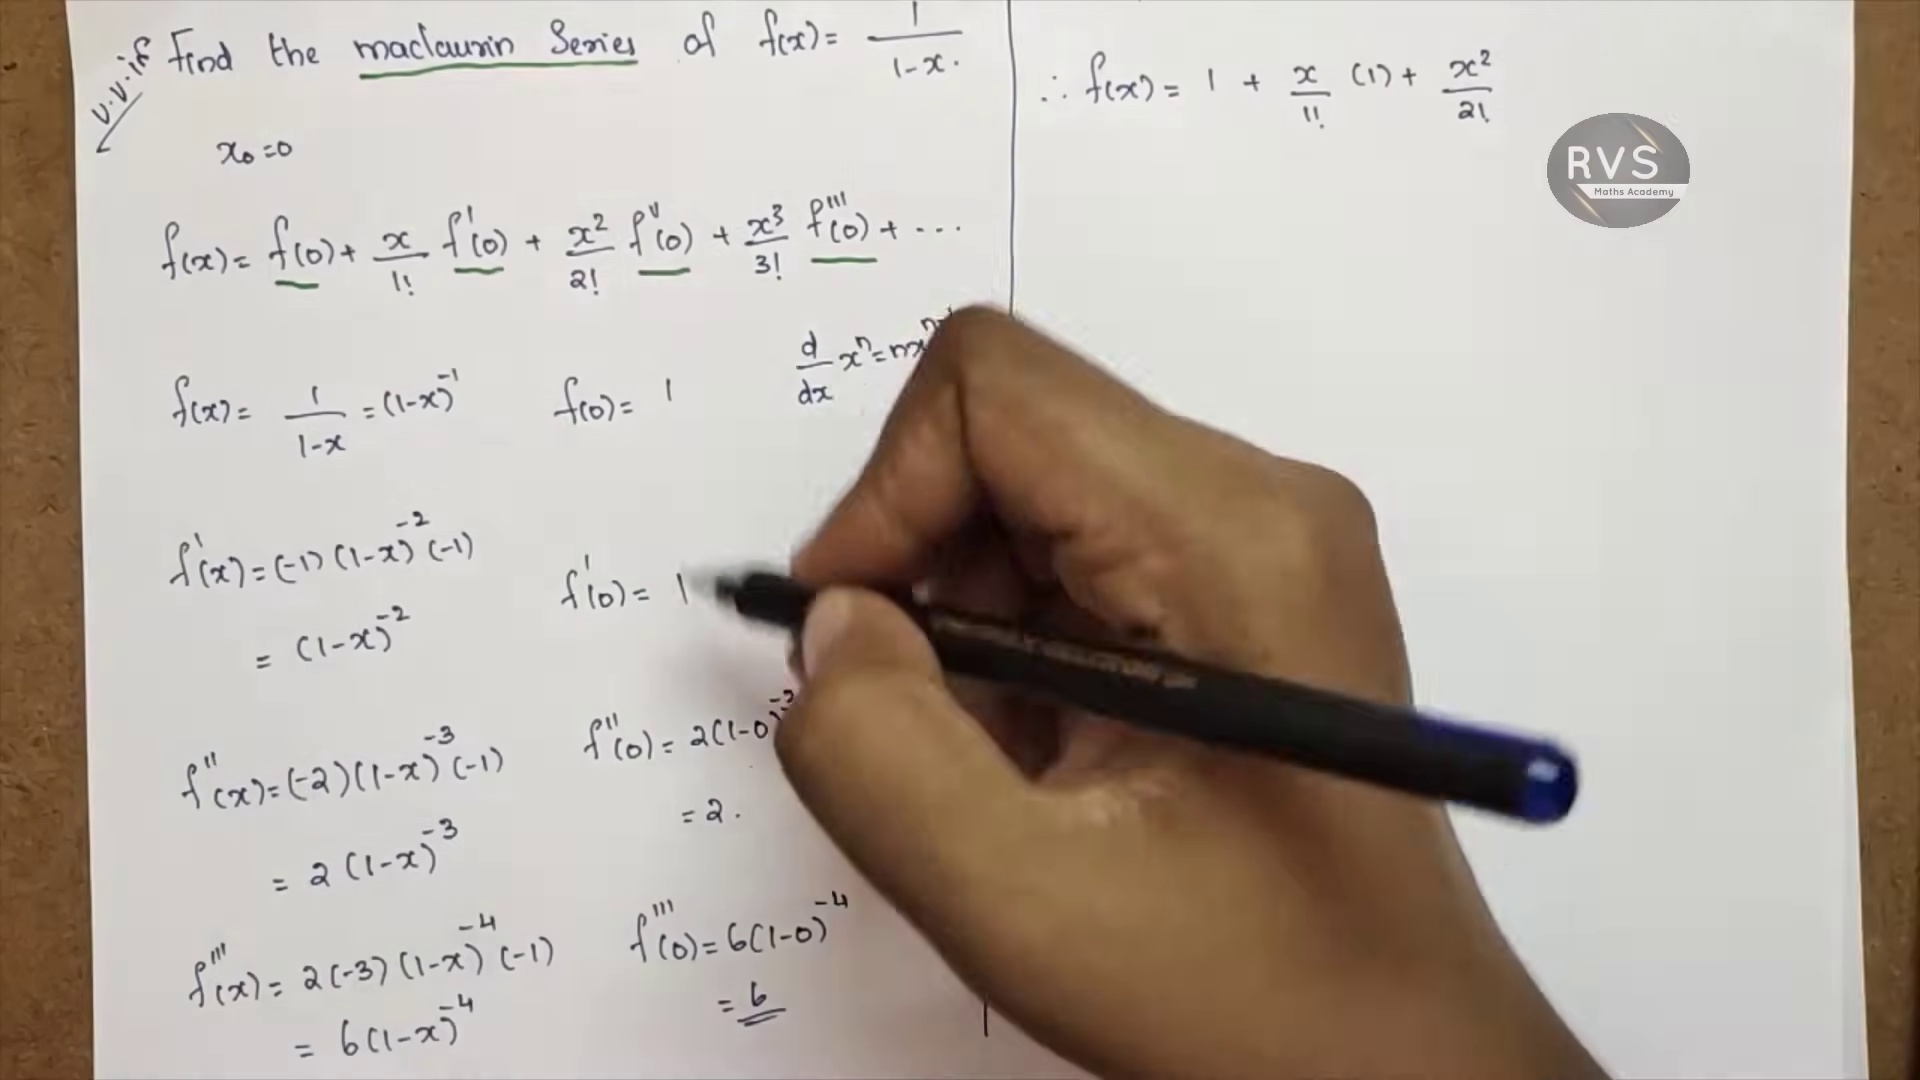 v.v.if Find the maclaurin Series of f(x) = 1/(1-x).
x₀=0
f(x) = f(0) + x/1! f'(0) + x²/2! f''(0) + x³/3! f'''(0) + ...
f(x) = 1/(1-x) = (1-x)⁻¹ f(0) = 1 d/dx xⁿ = nxⁿ⁻¹
f'(x) = (-1)(1-x)⁻²(-1) f'(0) = 1
= (1-x)⁻²
f''(x) = (-2)(1-x)⁻³(-1) f''(0) = 2(1-0)⁻³
= 2(1-x)⁻³ = 2.
f'''(x) = 2(-3)(1-x)⁻⁴(-1) f'''(0) = 6(1-0)⁻⁴
= 6(1-x)⁻⁴ = 6
∴ f(x) = 1 + x/1! (1) + x²/2!
RVS
Maths Academy